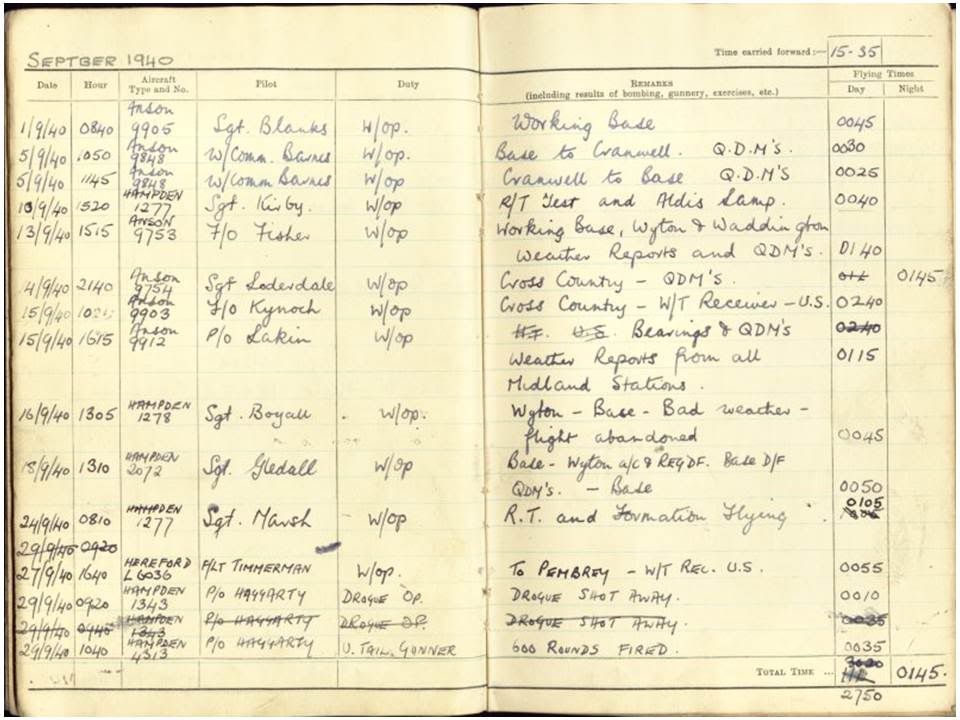 SEPTBER 1940
Time carried forward:— 15-35
Date Hour Aircraft Type and No. Pilot Duty REMARKS (including results of bombing, gunnery, exercises, etc.) Flying Times Day Night
1/9/40 0840 Anson 9905 Sgt. Blanks W/op. Working Base 0045
5/9/40 1050 Anson 9848 W/Comm. Barnes W/op. Base to Cranwell. Q.D.M's. 0030
5/9/40 1145 Anson 9848 W/Comm Barnes W/op Cranwell to Base Q.D.M's 0025
13/9/40 1520 HAMPDEN 1277 Sgt. Kirby. W/op R/T Test and Aldis Lamp. 0040
13/9/40 1515 ANSON 9753 F/O Fisher W/op Working Base, Wyton & Waddington
Weather Reports and QDM's. 0140
14/9/40 2140 Anson 9754 Sgt Loderdale W/op Cross Country - QDM's. 0145
15/9/40 Anson 9903 F/O Kynoch W/op Cross Country - W/T Receiver - U.S. 0240
15/9/40 1615 Anson 9912 P/O Lakin W/op H.F. U.S. Bearings & QDM's 0240
Weather Reports from all 0115
Midland Stations.
16/9/40 1305 HAMPDEN 1278 Sgt. Boyall W/op. Wyton - Base - Bad weather -
flight abandoned 0045
18/9/40 1310 HAMPDEN 2072 Sgt. Gledall W/op Base - Wyton a/c & REG DF. Base D/F
QDM's. - Base 0050
24/9/40 0810 HAMPDEN 1277 Sgt. Marsh W/op R.T. and Formation Flying 0105
29/9/40 0920
27/9/40 1640 HEREFORD L6036 F/LT TIMMERMAN W/op. TO PEMBREY - W/T REC. U.S. 0055
29/9/40 0920 HAMPDEN 1343 P/O HAGGARTY DROGUE OP. DROGUE SHOT AWAY. 0010
29/9/40 0940 HAMPDEN 1343 P/O HAGGARTY DROGUE OP. DROGUE SHOT AWAY. 0035
29/9/40 1040 HAMPDEN 4313 P/O HAGGARTY U. TAIL. GUNNER 600 ROUNDS FIRED. 0035
TOTAL TIME ... 0145.
2750